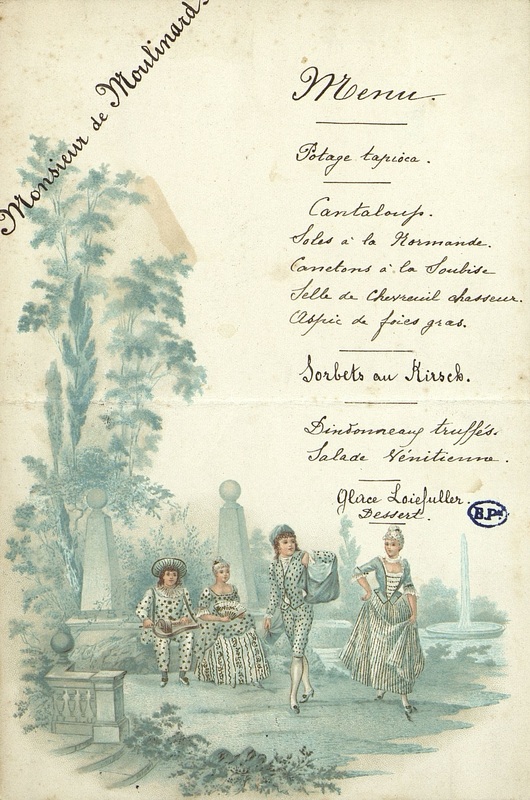 Monsieur de Moulinard
Menu.
Potage tapioca.
Cantaloup.
Soles à la Normande.
Canetons à la Soubise
Selle de Chevreuil chasseur.
Aspic de foies gras.
Sorbets au Kirsch.
Dindonneaux truffés.
Salade Vénitienne.
Glace Loïefuller.
Dessert.